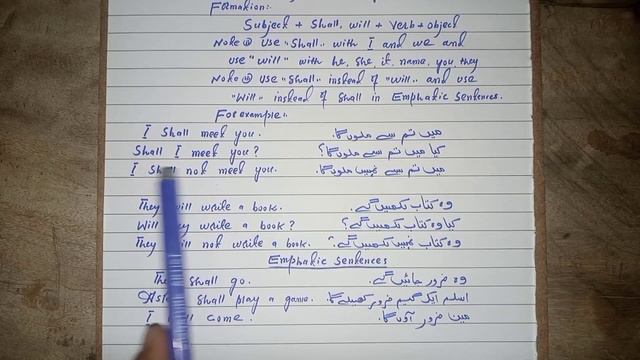 Formation:-
Subject + Shall, will + Verb + object
Note (i) Use "Shall" with I and we and
use "will" with he, she, it, name, you they
Note (ii) Use "Shall" instead of "will" and use
"Will" instead of Shall in Emphatic Sentences.
For example:-
I Shall meet you. میں تم سے ملوں گا۔
Shall I meet you? کیا میں تم سے ملوں گا؟
I Shall not meet you. میں تم سے نہیں ملوں گا۔
They will write a book. وہ کتاب لکھیں گے۔
Will they write a book? کیا وہ کتاب لکھیں گے؟
They will not write a book. وہ کتاب نہیں لکھیں گے۔
Emphatic Sentences
They Shall go. وہ ضرور جائیں گے۔
Shall play a game. اسلم ایک گیم ضرور کھیلے گا۔
I come. میں ضرور آؤں گا۔